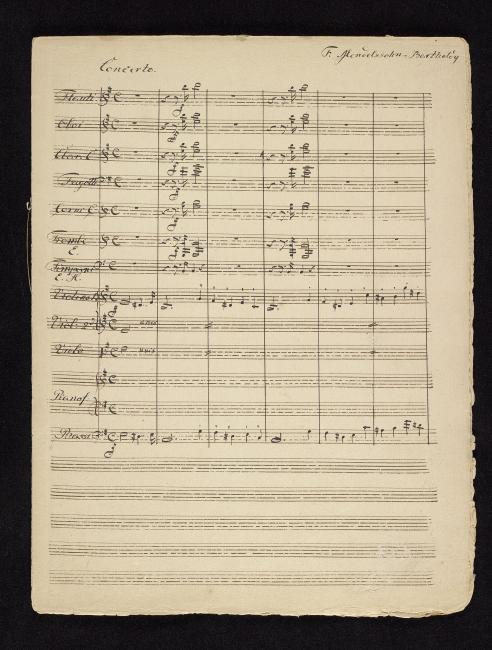 F. Mendelssohn-Bartholdy
Concerto.
Flauti
Oboi
Clari. C
Fagotti
Corni C
Trombe
E.
Timpani
Violino 1º
Viol: 2º
Viola
Pianof